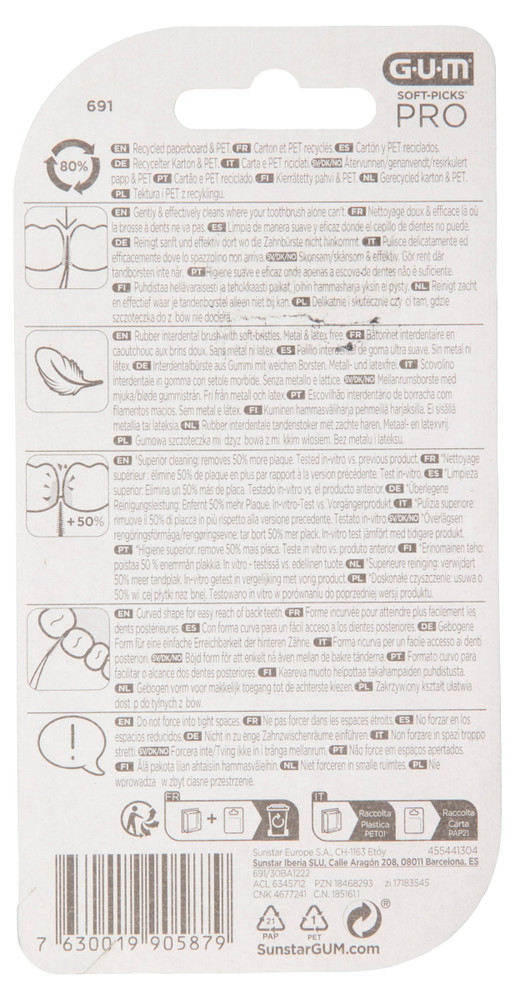 G·U·M
691
SOFT-PICKS®
PRO
80%
EN Recycled paperboard & PET. FR Carton et PET recyclés. ES Cartón y PET reciclados.
DE Recycelter Karton & PET. IT Carta e PET riciclati. SV/DK/NO Återvunnen/genanvendt/resirkulert
papp & PET. PT Cartão e PET reciclado. FI Kierrätetty pahvi & PET. NL Gerecycled karton & PET.
PL Tektura i PET z recyklingu.
EN Gently & effectively cleans where your toothbrush alone can't. FR Nettoyage doux & efficace là où
la brosse à dents ne va pas. ES Limpia de manera suave y eficaz donde el cepillo de dientes no puede.
DE Reinigt sanft und effektiv dort wo die Zahnbürste nicht hinkommt. IT Pulisce delicatamente ed
efficacemente dove lo spazzolino non arriva. SV/DK/NO Skonsam/skånsom & effektiv. Gör rent där
tandborsten inte når. PT Higiene suave e eficaz onde apenas a escova de dentes não é suficiente.
FI Puhdistaa hellävaraisesti ja tehokkaasti paikat, joihin hammasharja yksin ei pysty. NL Reinigt zacht
en effectief waar je tandenborstel alleen niet bij kan. PL Delikatnie i skutecznie czy ci tam, gdzie
szczoteczka do z bów nie dociera.
EN Rubber interdental brush with soft-bristles. Metal & latex free. FR Bâtonnet interdentaire en
caoutchouc aux brins doux. Sans métal ni latex. ES Palillo interdental de goma ultra suave. Sin metal ni
látex. DE Interdentalbürste aus Gummi mit weichen Borsten. Metall- und latexfrei. IT Scovolino
interdentale in gomma con setole morbide. Senza metallo e lattice. SV/DK/NO Mellanrumsborste med
mjuka/bløde gummistrån. Fri från metall och latex. PT Escovilhão interdentário de borracha com
filamentos macios. Sem metal e látex. FI Kuminen hammasväliharja pehmeillä harjaksilla. Ei sisällä
metallia tai lateksia. NL Rubber interdentale tandenstoker met zachte haren. Metaal- en latexvrij.
PL Gumowa szczoteczka mi dzyz bowa z mi kkim włosiem. Bez metalu i lateksu.
+50%
EN *Superior cleaning: removes 50% more plaque. Tested in-vitro vs. previous product. FR *Nettoyage
supérieur : élimine 50% de plaque en plus par rapport à la version précédente. Test in-vitro. ES *Limpieza
superior. Elimina un 50% más de placa. Testado in-vitro vs. el producto anterior. DE *Überlegene
Reinigungsleistung: Enfernt 50% mehr Plaque. In-vitro-Test vs. Vorgängerprodukt. IT *Pulizia superiore:
rimuove il 50% di placca in più rispetto alla versione precedente. Testato in vitro SV/DK/NO *Överlägsen
rengöringsförmåga/rengøringsevne: tar bort 50% mer plack. In-vitro test jämfört med tidigare produkt.
PT *Higiene superior: remove 50% mas placa. Teste in vitro vs. produto anterior. FI *Erinomainen teho:
poistaa 50 % enemmän plakkia. In vitro - testissä vs. edellinen tuote. NL *Superieure reiniging: verwijdert
50% meer tandplak. In-vitro getest in vergelijking met vorig product. PL *Doskonałe czyszczenie: usuwa o
50% wi cej płytki naz bnej. Testowano in vitro w porównaniu do poprzedniej wersji produktu.
EN Curved shape for easy reach of back teeth. FR Forme incurvée pour atteindre plus facilement les
dents posterieures. ES Con forma curva para un fácil acceso a los dientes posteriores. DE Gebogene
Form für eine einfache Erreichbarkeit der hinteren Zähne. IT Forma ricurva per un facile accesso ai denti
posteriori. SV/DK/NO Böjd form för att enkelt nå även mellan de bakre tänderna. PT Formato curvo para
facilitar o alcance dos dentes posteriores. FI Kaareva muoto helpottaa takahampaiden puhdistusta.
NL Gebogen vorm voor makkelijk toegang tot de achterste kiezen. PL Zakrzywiony kształt ułatwia
dost p do tylnych z bów.
EN Do not force into tight spaces. FR Ne pas forcer dans les espaces étroits. ES No forzar en los
espacios reducidos. DE Nicht in zu enge Zahnzwischenräume einführen. IT Non forzare in spazi troppo
stretti. SV/DK/NO Forcera inte/Tving ikke in i trånga mellanrum. PT Não force em espaços apertados.
FI Älä pakota liian ahtaisiin hammasväleihin. NL Niet forceren in smalle ruimtes. PL Nie
wprowadza w zbyt ciasne przestrzenie.
FR
IT
Raccolta
Plastica
PET01
Raccolta
Carta
PAP21
Sunstar Europe S.A., CH-1163 Etoy 455441304
Sunstar Iberia SLU, Calle Aragón 208, 08011 Barcelona. ES
691/30BA1222
ACL 6345712 PZN 18468293 zi 17183545
CNK 4677241 C.N. 185161.1
21
PAP
1
PET
®
7 630019 905879
SunstarGUM.com